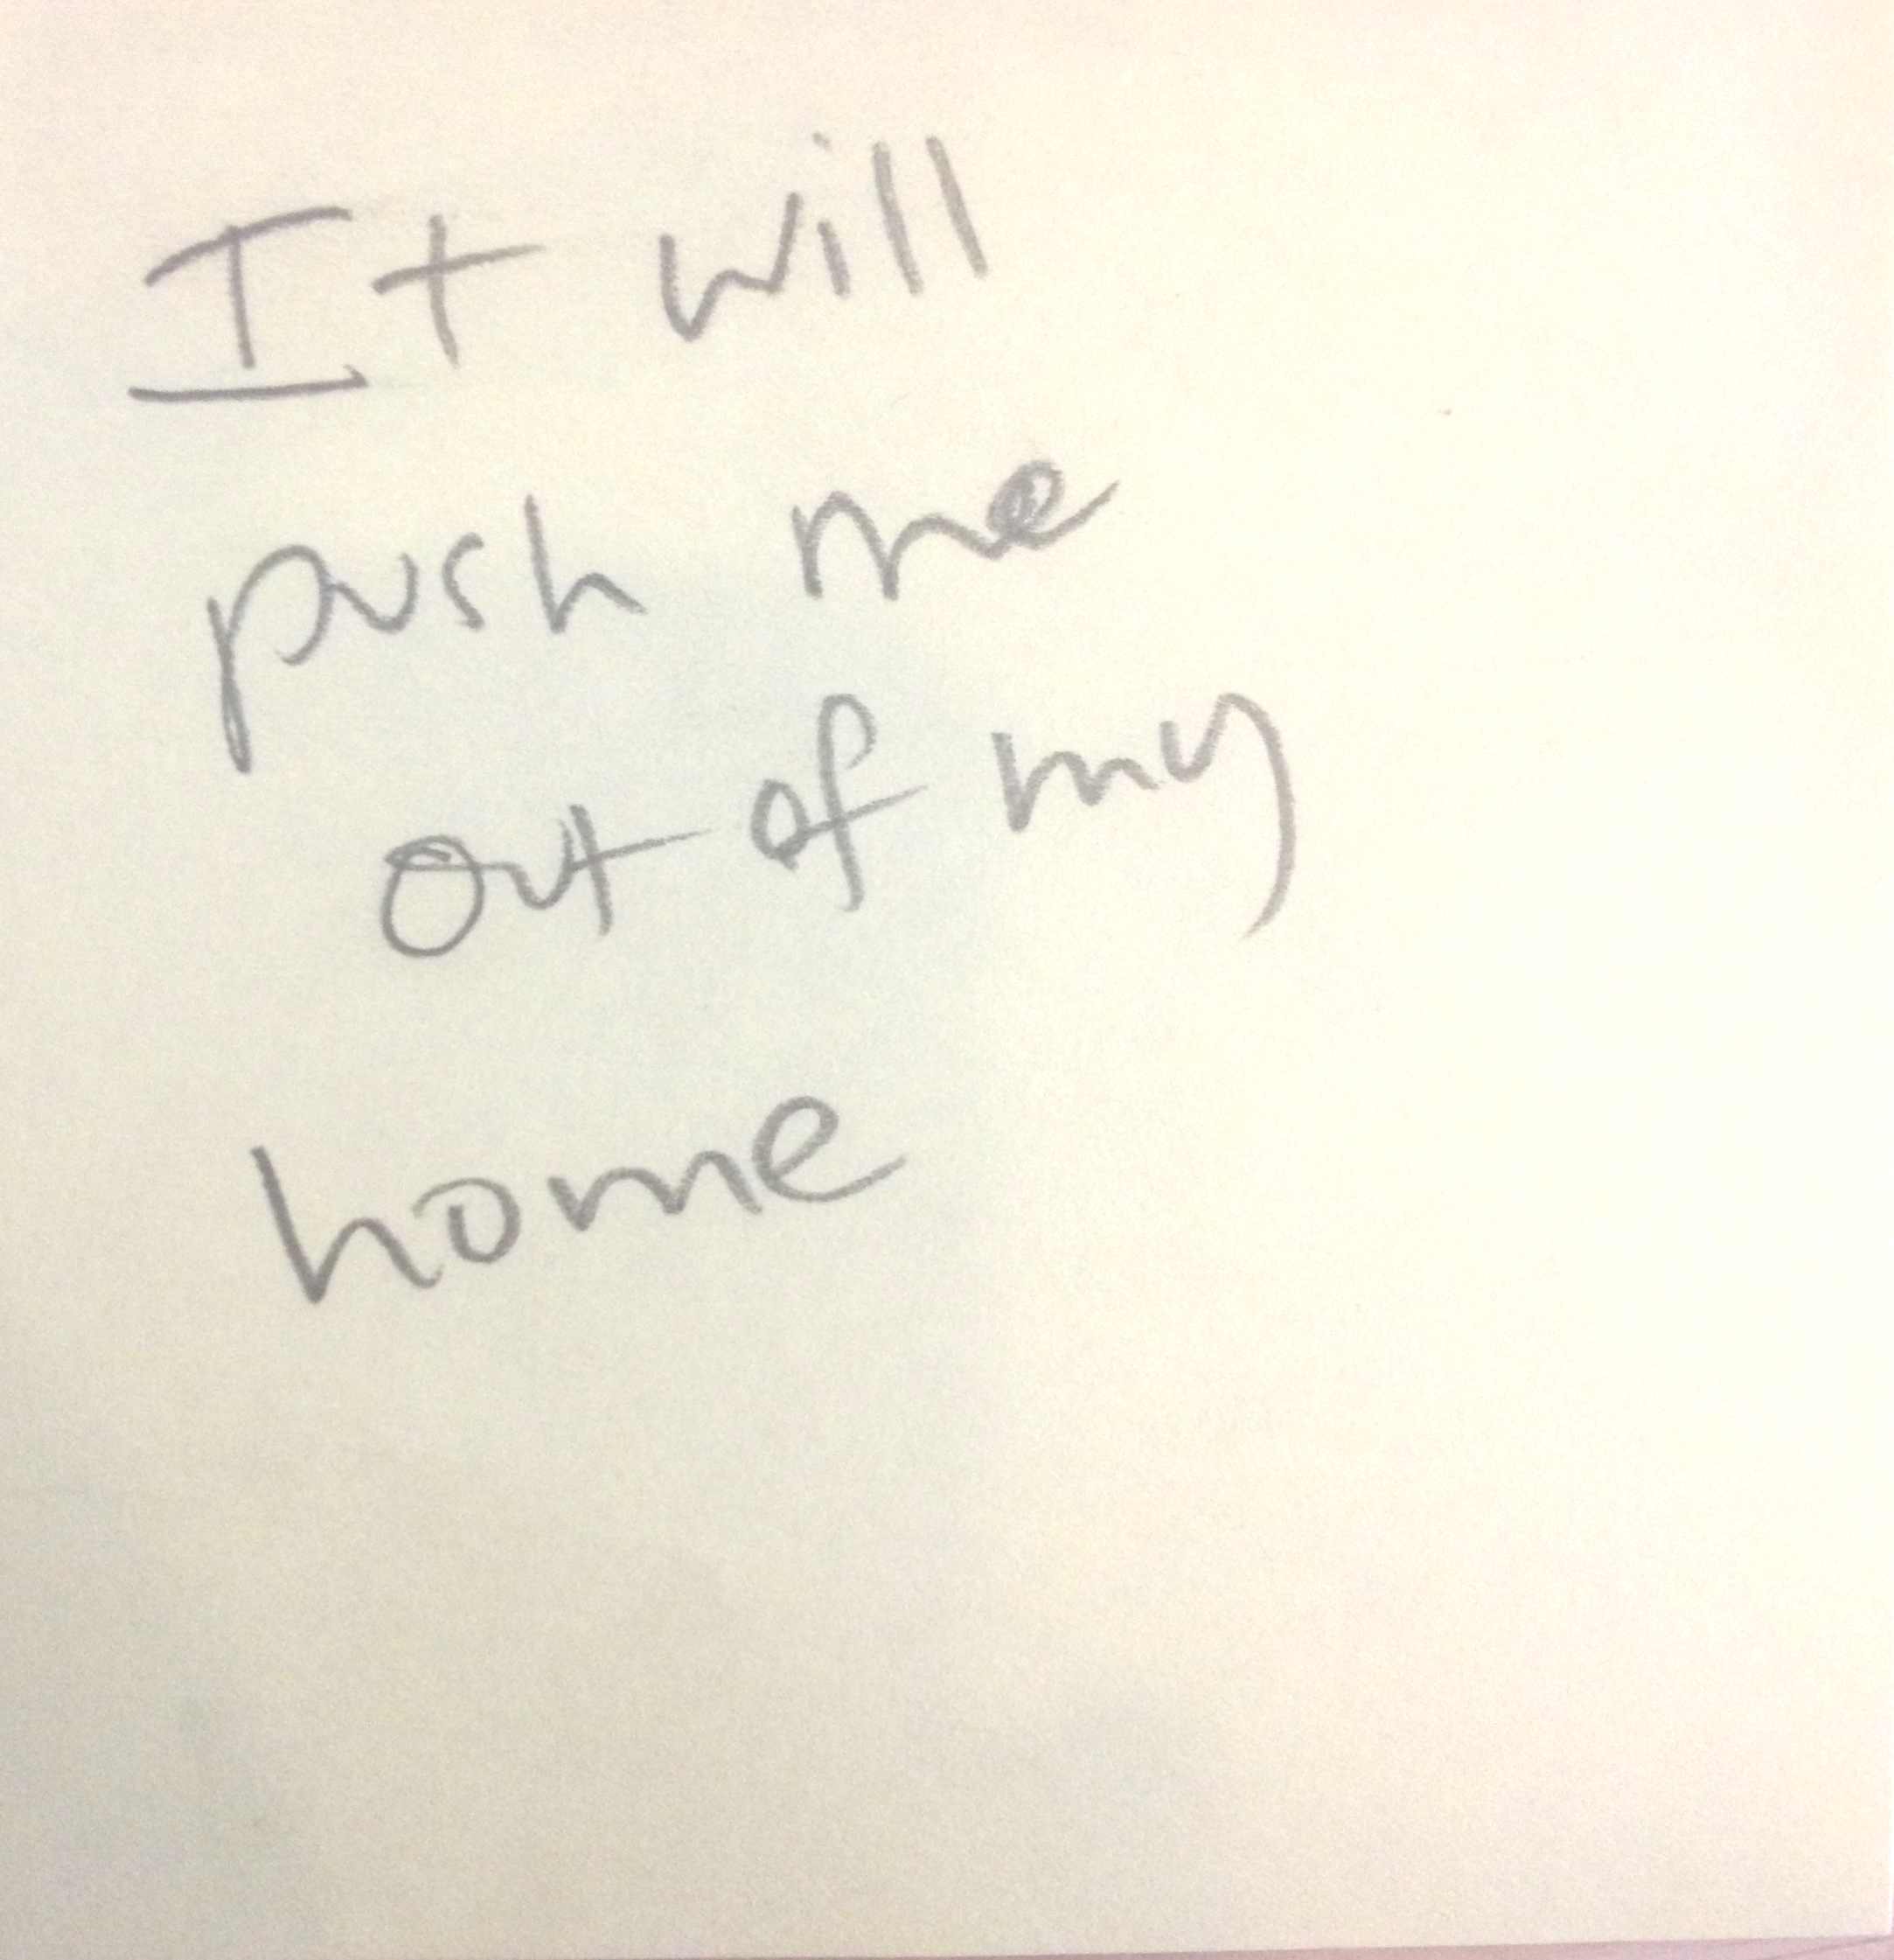 It will
push me
out of my
home